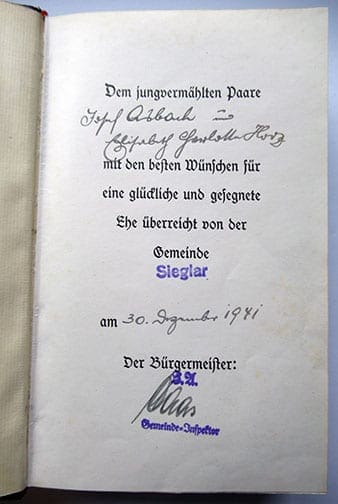 Dem jungvermählten Paare
Josef Asbach u
Elisabeth Charlotte Horz
mit den besten Wünschen für
eine glückliche und gesegnete
Ehe überreicht von der
Gemeinde
Sieglar
am 30. Dezember 1941
Der Bürgermeister:
J.A.
Gemeinde-Inspektor